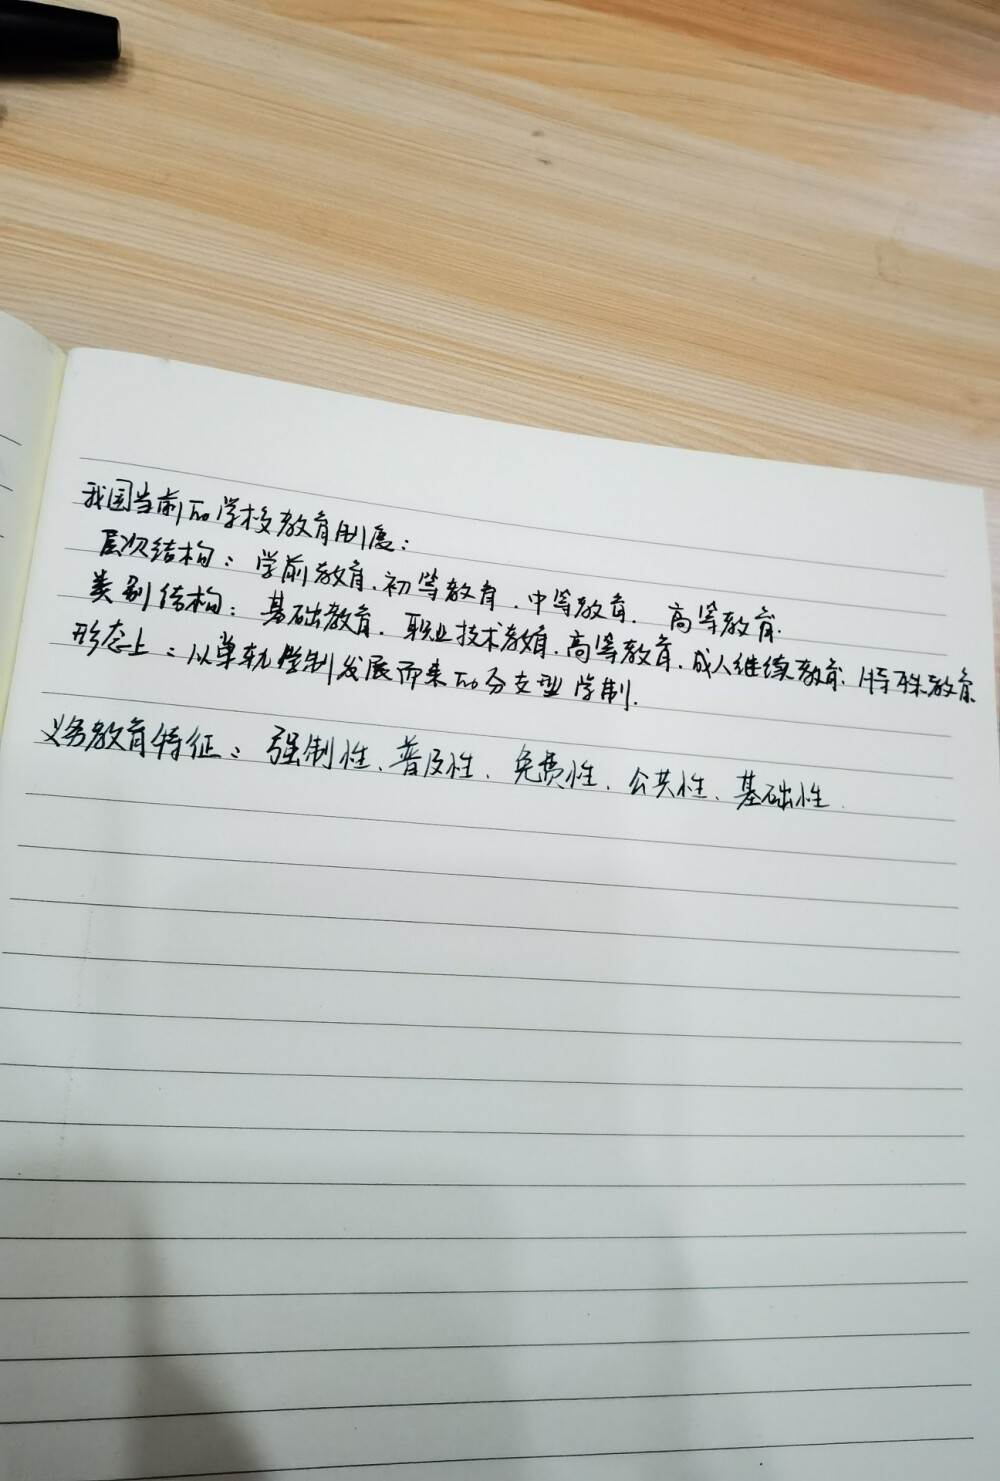 我国当前的学校教育制度：
层次结构：学前教育、初等教育、中等教育、高等教育.
类别结构：基础教育、职业技术教育、高等教育、成人继续教育、特殊教育.
形态上：从单轨学制发展而来的分支型学制.
义务教育特征：强制性、普及性、免费性、公共性、基础性.